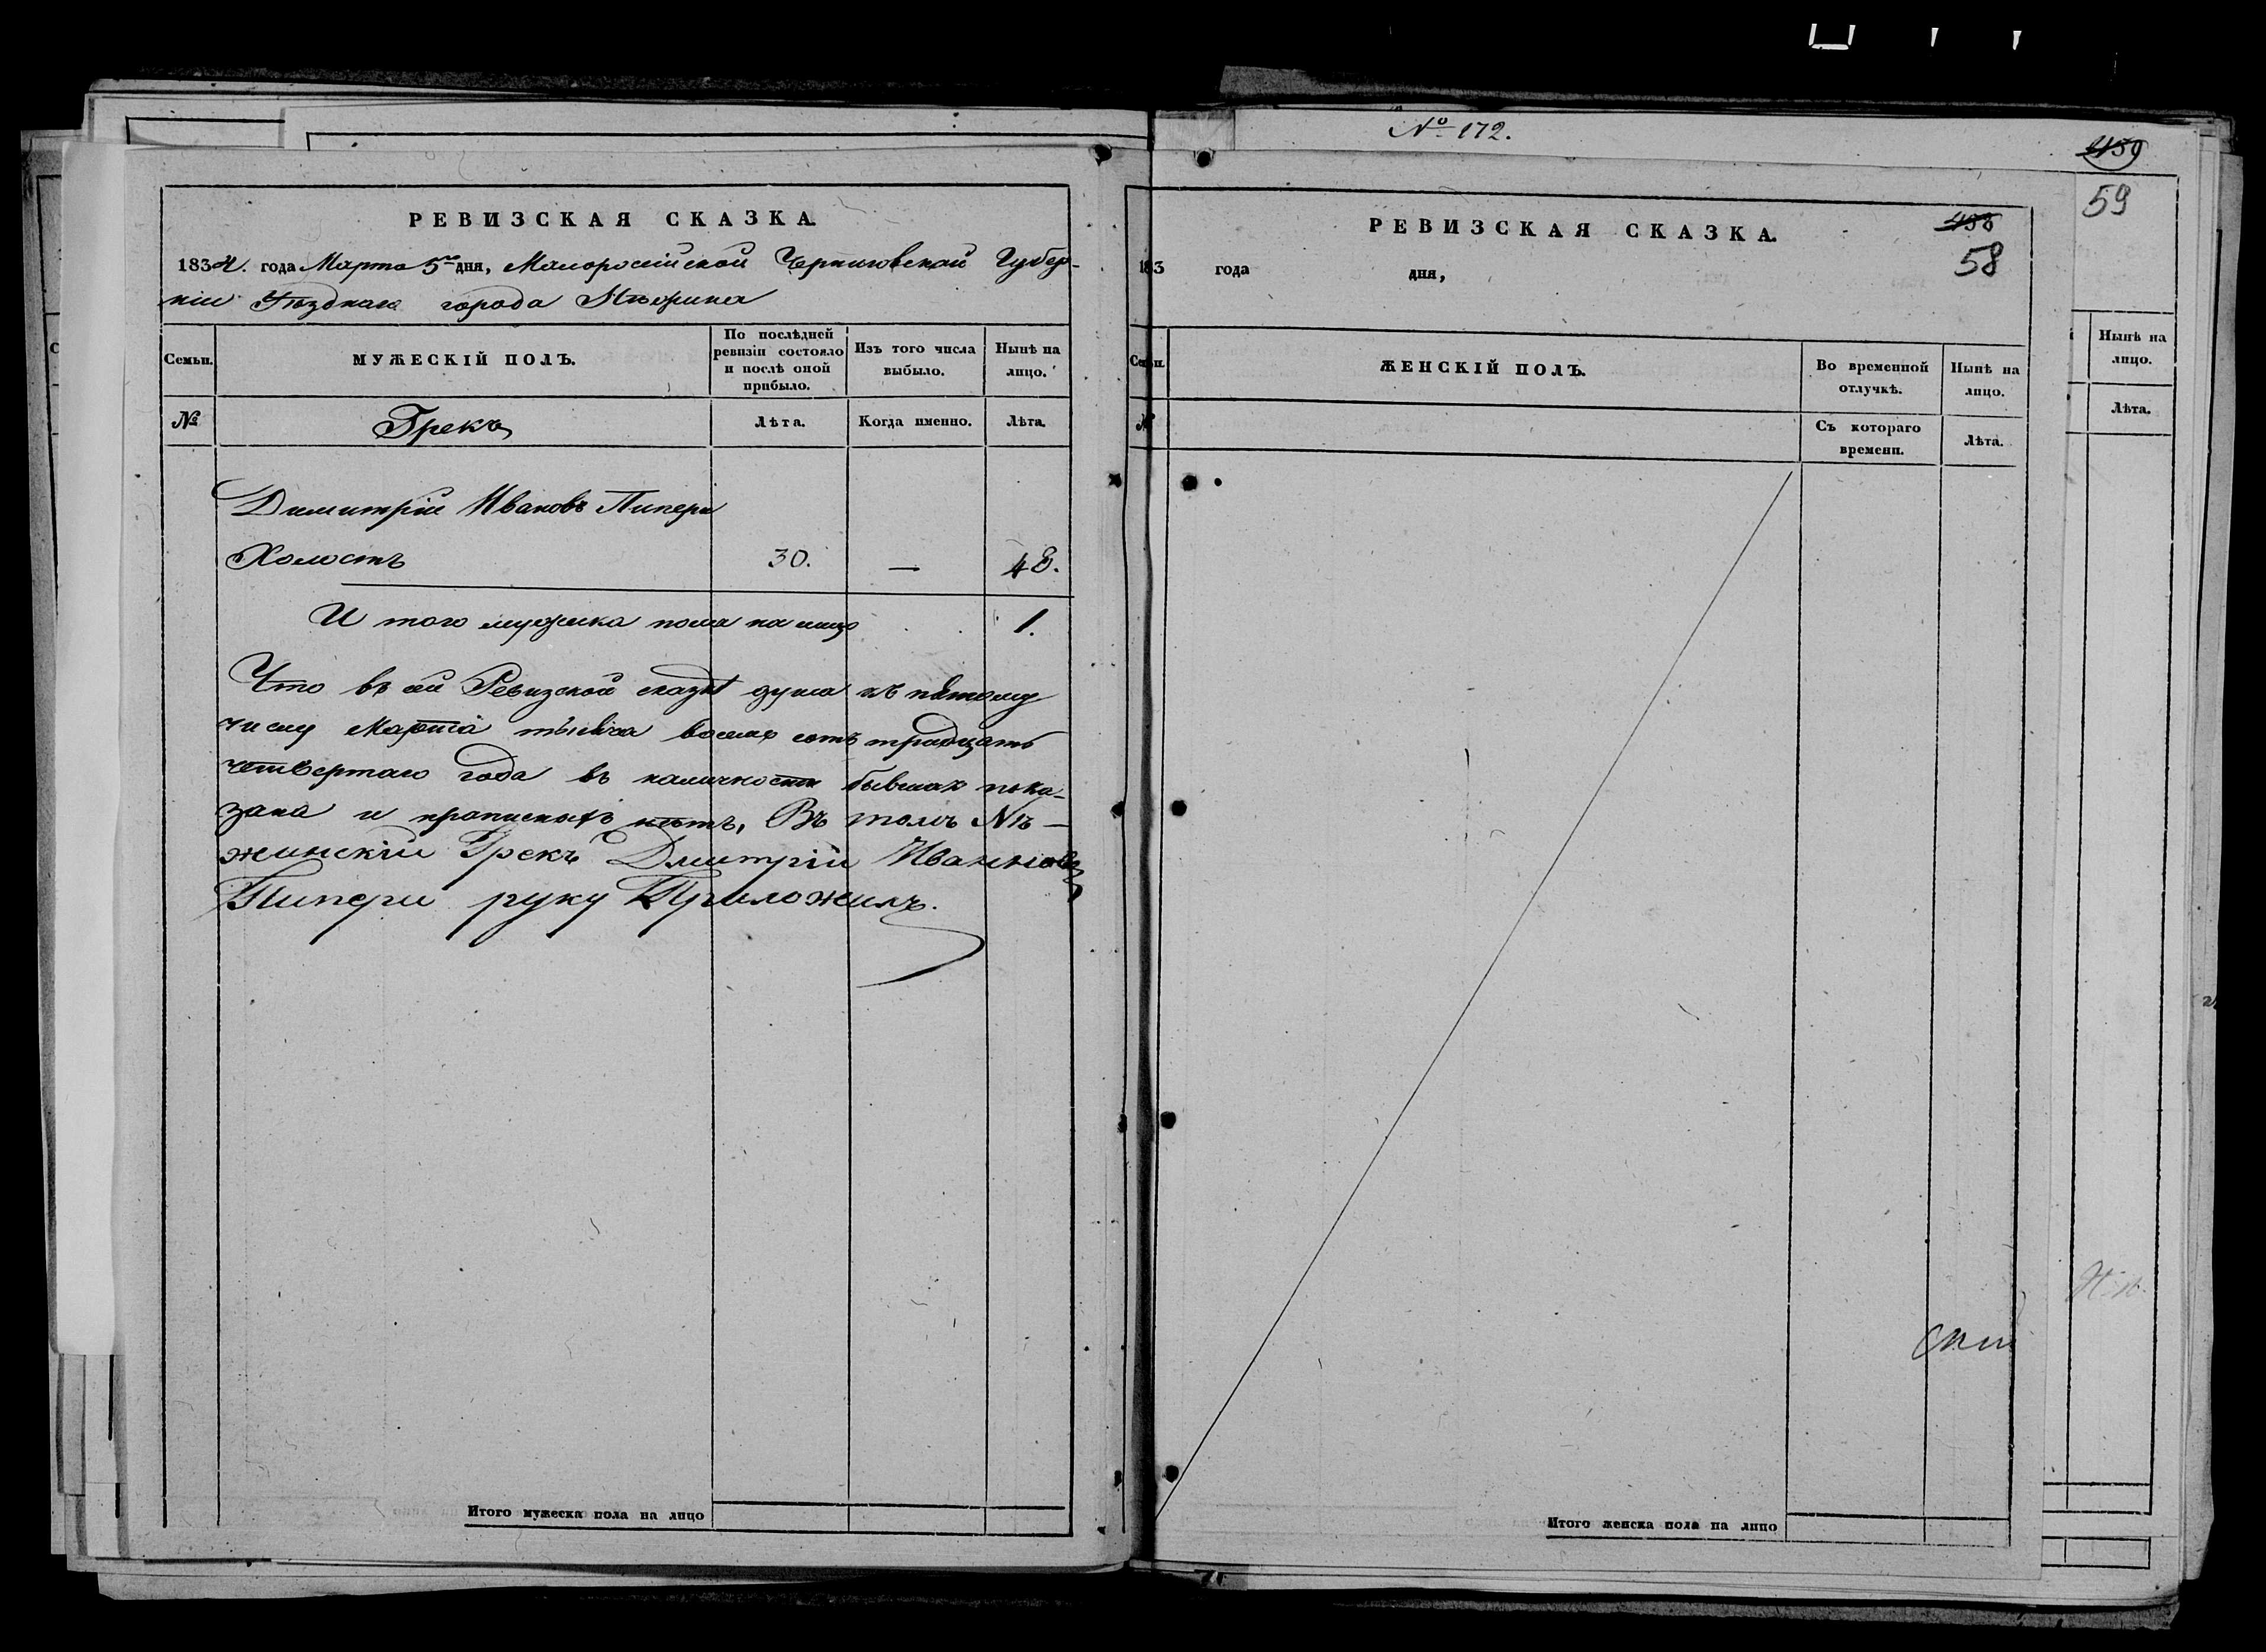 № 172.
459
59
РЕВИЗСКАЯ СКАЗКА.
1834. года Марта 5го дня, Малоросiйской Черниговской Губер-
нiи Уѣзднаго города Нѣжина
Семьи.
МУЖЕСКIЙ ПОЛЪ.
По послѣдней ревизiи состояло и послѣ оной прибыло.
Изъ того числа выбыло.
Нынѣ на лицо.
№
Грекъ
Лѣта.
Когда именно.
Лѣта.
Димитрiй Ивановъ Пипери
Холостъ 30. — 48.
И того мужеска пола на лицо 1.
Что въ сей Ревизской сказкѣ душа къ пятому
числу Марта тысяча восемь сотъ тридцать
четвертаго года въ наличности бывшая пока-
зана и прописныхъ нѣтъ, Въ томъ Нѣ-
жинскiй Грекъ Дмитрiй Ивановъ
Пипери руку Приложилъ.
Итого мужеска пола на лицо
РЕВИЗСКАЯ СКАЗКА.
458
58
183 года дня,
Семьи.
ЖЕНСКIЙ ПОЛЪ.
Во временной отлучкѣ.
Нынѣ на лицо.
№
Съ котораго времени.
Лѣта.
Итого женска пола на лицо
Нынѣ на лицо.
Лѣта.